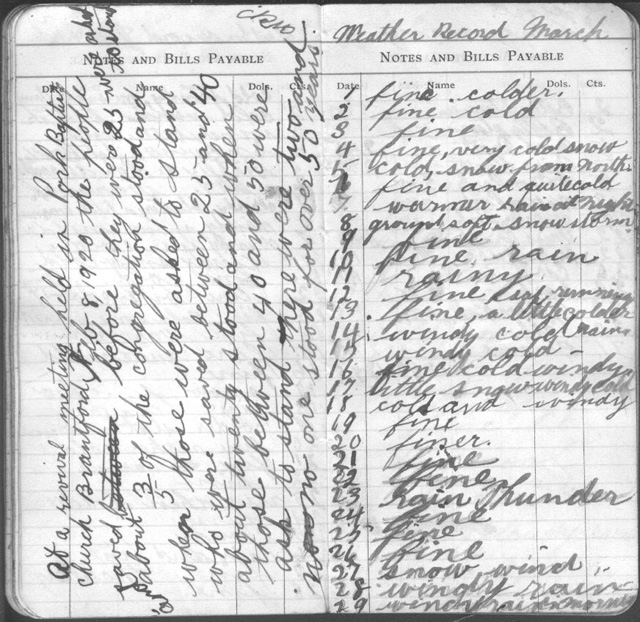 NOTES AND BILLS PAYABLE
Date Name Dols. Cts.
At a revival meeting held in Park Baptist
church Brantford Feb 8 1920 the people
saved before they were 25 were asked
to stand
about 3/5 of the congregation stood and
when those were asked to stand
who were saved between 25 and 40
about twenty stood and when
those between 40 and 50 were
ask to stand there were two and
no one stood for over 50 years.
Weather Record March
NOTES AND BILLS PAYABLE
Date Name Dols. Cts.
1 fine colder.
2 fine cold
3 fine
4 fine, very cold snow
5 cold, snow from north
6 fine and quite cold
7 warmer rain at night
8 ground soft snow storm
9 fine
10 fine, rain
11 rainy
12 fine sap running
13 fine, a little colder
14 windy cold rain
15 windy cold
16 fine cold windy
17 little snow windy cold
18 cold and windy
19 fine
20 finer.
21 fine
22 fine
23 rain thunder
24 fine
25 fine
26 fine
27 snow, wind
28 windy rain
29 windy rain morning